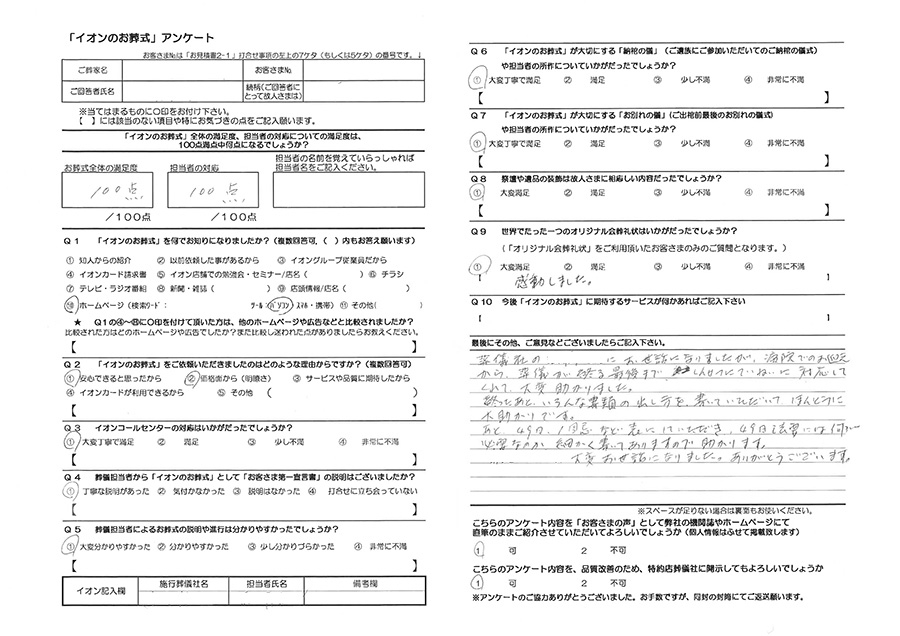 「イオンのお葬式」アンケート
お客さま№は「お見積書2-1」打合せ事項の左上の7ケタ（もしくは5ケタ）の番号です。↓
ご葬家名
お客さま№
ご回答者氏名
続柄（ご回答者にとって故人さまは）
※当てはまるものに○印をお付け下さい。
【　】には該当のない項目や特にお気づきの点をご記入願います。
「イオンのお葬式」全体の満足度、担当者の対応についての満足度は、
100点満点中何点になるでしょうか？
お葬式全体の満足度
担当者の対応
担当者の名前を覚えていらっしゃれば
担当者名をご記入ください。
100点
100点
/100点
/100点
Q 1　「イオンのお葬式」を何でお知りになりましたか？（複数回答可，（　）内もお答え願います）
① 知人からの紹介　② 以前依頼した事があるから　③ イオングループ従業員だから
④ イオンカード請求書　⑤ イオン店舗での勉強会・セミナー/店名（　）　⑥ チラシ
⑦ テレビ・ラジオ番組　⑧ 新聞・雑誌（　）　⑨ 店頭情報/店名（　）
⑩ ホームページ（検索ワード：　ツール：パソコン・スマホ・携帯）⑪ その他（　）
★　Q1の④～⑪に○印を付けて頂いた方は、他のホームページや広告などと比較されましたか？
比較された方はどのホームページや広告でしたか？また比較し迷われた点がありましたらお教えください。
【　】
Q 2　「イオンのお葬式」をご依頼いただきましたのはどのような理由からですか？（複数回答可）
① 安心できると思ったから　② 価格面から（明瞭さ）　③ サービスや品質に期待したから
④ イオンカードが利用できるから　⑤ その他（　）
【　】
Q 3　イオンコールセンターの対応はいかがだったでしょうか？
① 大変丁寧で満足　② 満足　③ 少し不満　④ 非常に不満
【　】
Q 4　葬儀担当者から「イオンのお葬式」として「お客さま第一宣言書」の説明はございましたか？
① 丁寧な説明があった　② 気付かなかった　③ 説明はなかった　④ 打合せに立ち会っていない
【　】
Q 5　葬儀担当者によるお葬式の説明や進行は分かりやすかったでしょうか？
① 大変分かりやすかった　② 分かりやすかった　③ 少し分かりづらかった　④ 非常に不満
【　】
イオン記入欄
施行葬儀社名
担当者氏名
備考欄
Q 6　「イオンのお葬式」が大切にする「納棺の儀」（ご遺族にご参加いただいてのご納棺の儀式）
や担当者の所作についていかがだったでしょうか？
① 大変丁寧で満足　② 満足　③ 少し不満　④ 非常に不満
【　】
Q 7　「イオンのお葬式」が大切にする「お別れの儀」（ご出棺前最後のお別れの儀式）
や担当者の所作についていかがだったでしょうか？
① 大変丁寧で満足　② 満足　③ 少し不満　④ 非常に不満
【　】
Q 8　祭壇や遺品の装飾は故人さまに相応しい内容だったでしょうか？
① 大変満足　② 満足　③ 少し不満　④ 非常に不満
【　】
Q 9　世界でたった一つのオリジナル会葬礼状はいかがだったでしょうか？
（「オリジナル会葬礼状」をご利用頂いたお客さまのみのご質問となります。）
① 大変満足　② 満足　③ 少し不満　④ 非常に不満
感動しました。
Q 10　今後「イオンのお葬式」に期待するサービスが何かあればご記入下さい
最後にその他、ご意見などございましたらご記入下さい。
葬儀社の　にお世話になりましたが、病院でのお迎え
から、葬儀が終る最後まで しんせつにていねいに 対応して
くれて、大変助かりました。
終ったあと、いろんな書類の出し方を、書いていただいて ほんとうに
大助かりです。
あと、49日、1回忌など 表に していただき、49日法要には何が
必要なのか 細かく書いてありますので 助かります。
大変お世話になりました。ありがとうございます。
※スペースが足りない場合は裏面もお使いください。
こちらのアンケート内容を「お客さまの声」として弊社の機関誌やホームページにて
直筆のままご紹介させていただいてよろしいでしょうか（個人情報はふせて掲載致します）
1　可　2　不可
こちらのアンケート内容を、品質改善のため、特約店葬儀社に開示してもよろしいでしょうか
1　可　2　不可
※アンケートのご協力ありがとうございました。お手数ですが、同封の封筒にてご返送願います。